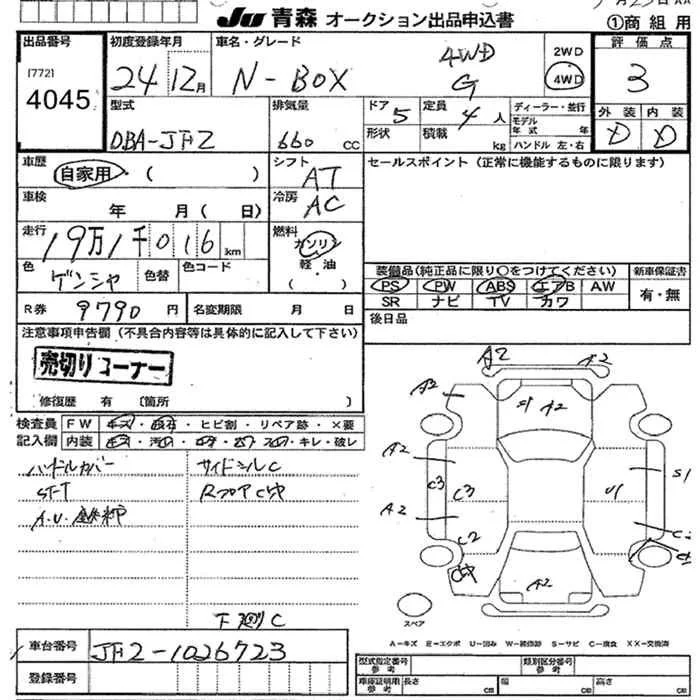 JU 青森 オークション出品申込書
①商組用
出品番号
(772)
4045
初度登録年月
24 12月
車名・グレード
N-BOX
4WD
G
2WD
4WD
評価点
3
型式
DBA-JF2
排気量
660 CC
ドア 5
形状
定員 4 人
積載 kg
ディーラー・並行
モデル年式 年
ハンドル 左・右
外装 内装
D D
車歴
自家用・( )
シフト
AT
セールスポイント(正常に機能するものに限ります)
車検
年 月( 日)
冷房
AC
走行
19万1千016 km
燃料
ガソリン
軽・油
( )
色
ゲンシャ
色替
色コード
装備品(純正品に限り〇をつけてください)
新車保証書
PS PW ABS エアB AW
SR ナビ TV カワ
有・無
R券 9790 円
名変期限 月 日
後日品
注意事項申告欄(不具合内容等は具体的に記入して下さい)
売切りコーナー
修復歴 有 〔箇所 〕
検査員記入欄
FW ・ヒビ割・リペア跡・×要
内装 ・キレ・破レ
ハンドルカバー
サイドシルC
下廻C
A2
A2
A2
S1 A2
A2
C3
C3
S1
U1
A2
C2
A2
スペア
A-キズ E-エクボ U-凹み W-補修跡 S-サビ C-腐食 XX-交換済
車台番号
JF2-1026723
登録番号
型式指定番号 参考
類別区分番号 参考
車庫証明用 参考
長さ cm
幅 cm
高さ cm